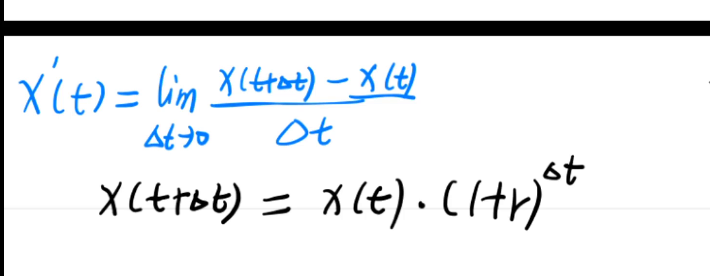 x'(t) = lim x(t+Δt) - x(t)
Δt→0 Δt
x(t+Δt) = x(t) · (1+r)^Δt